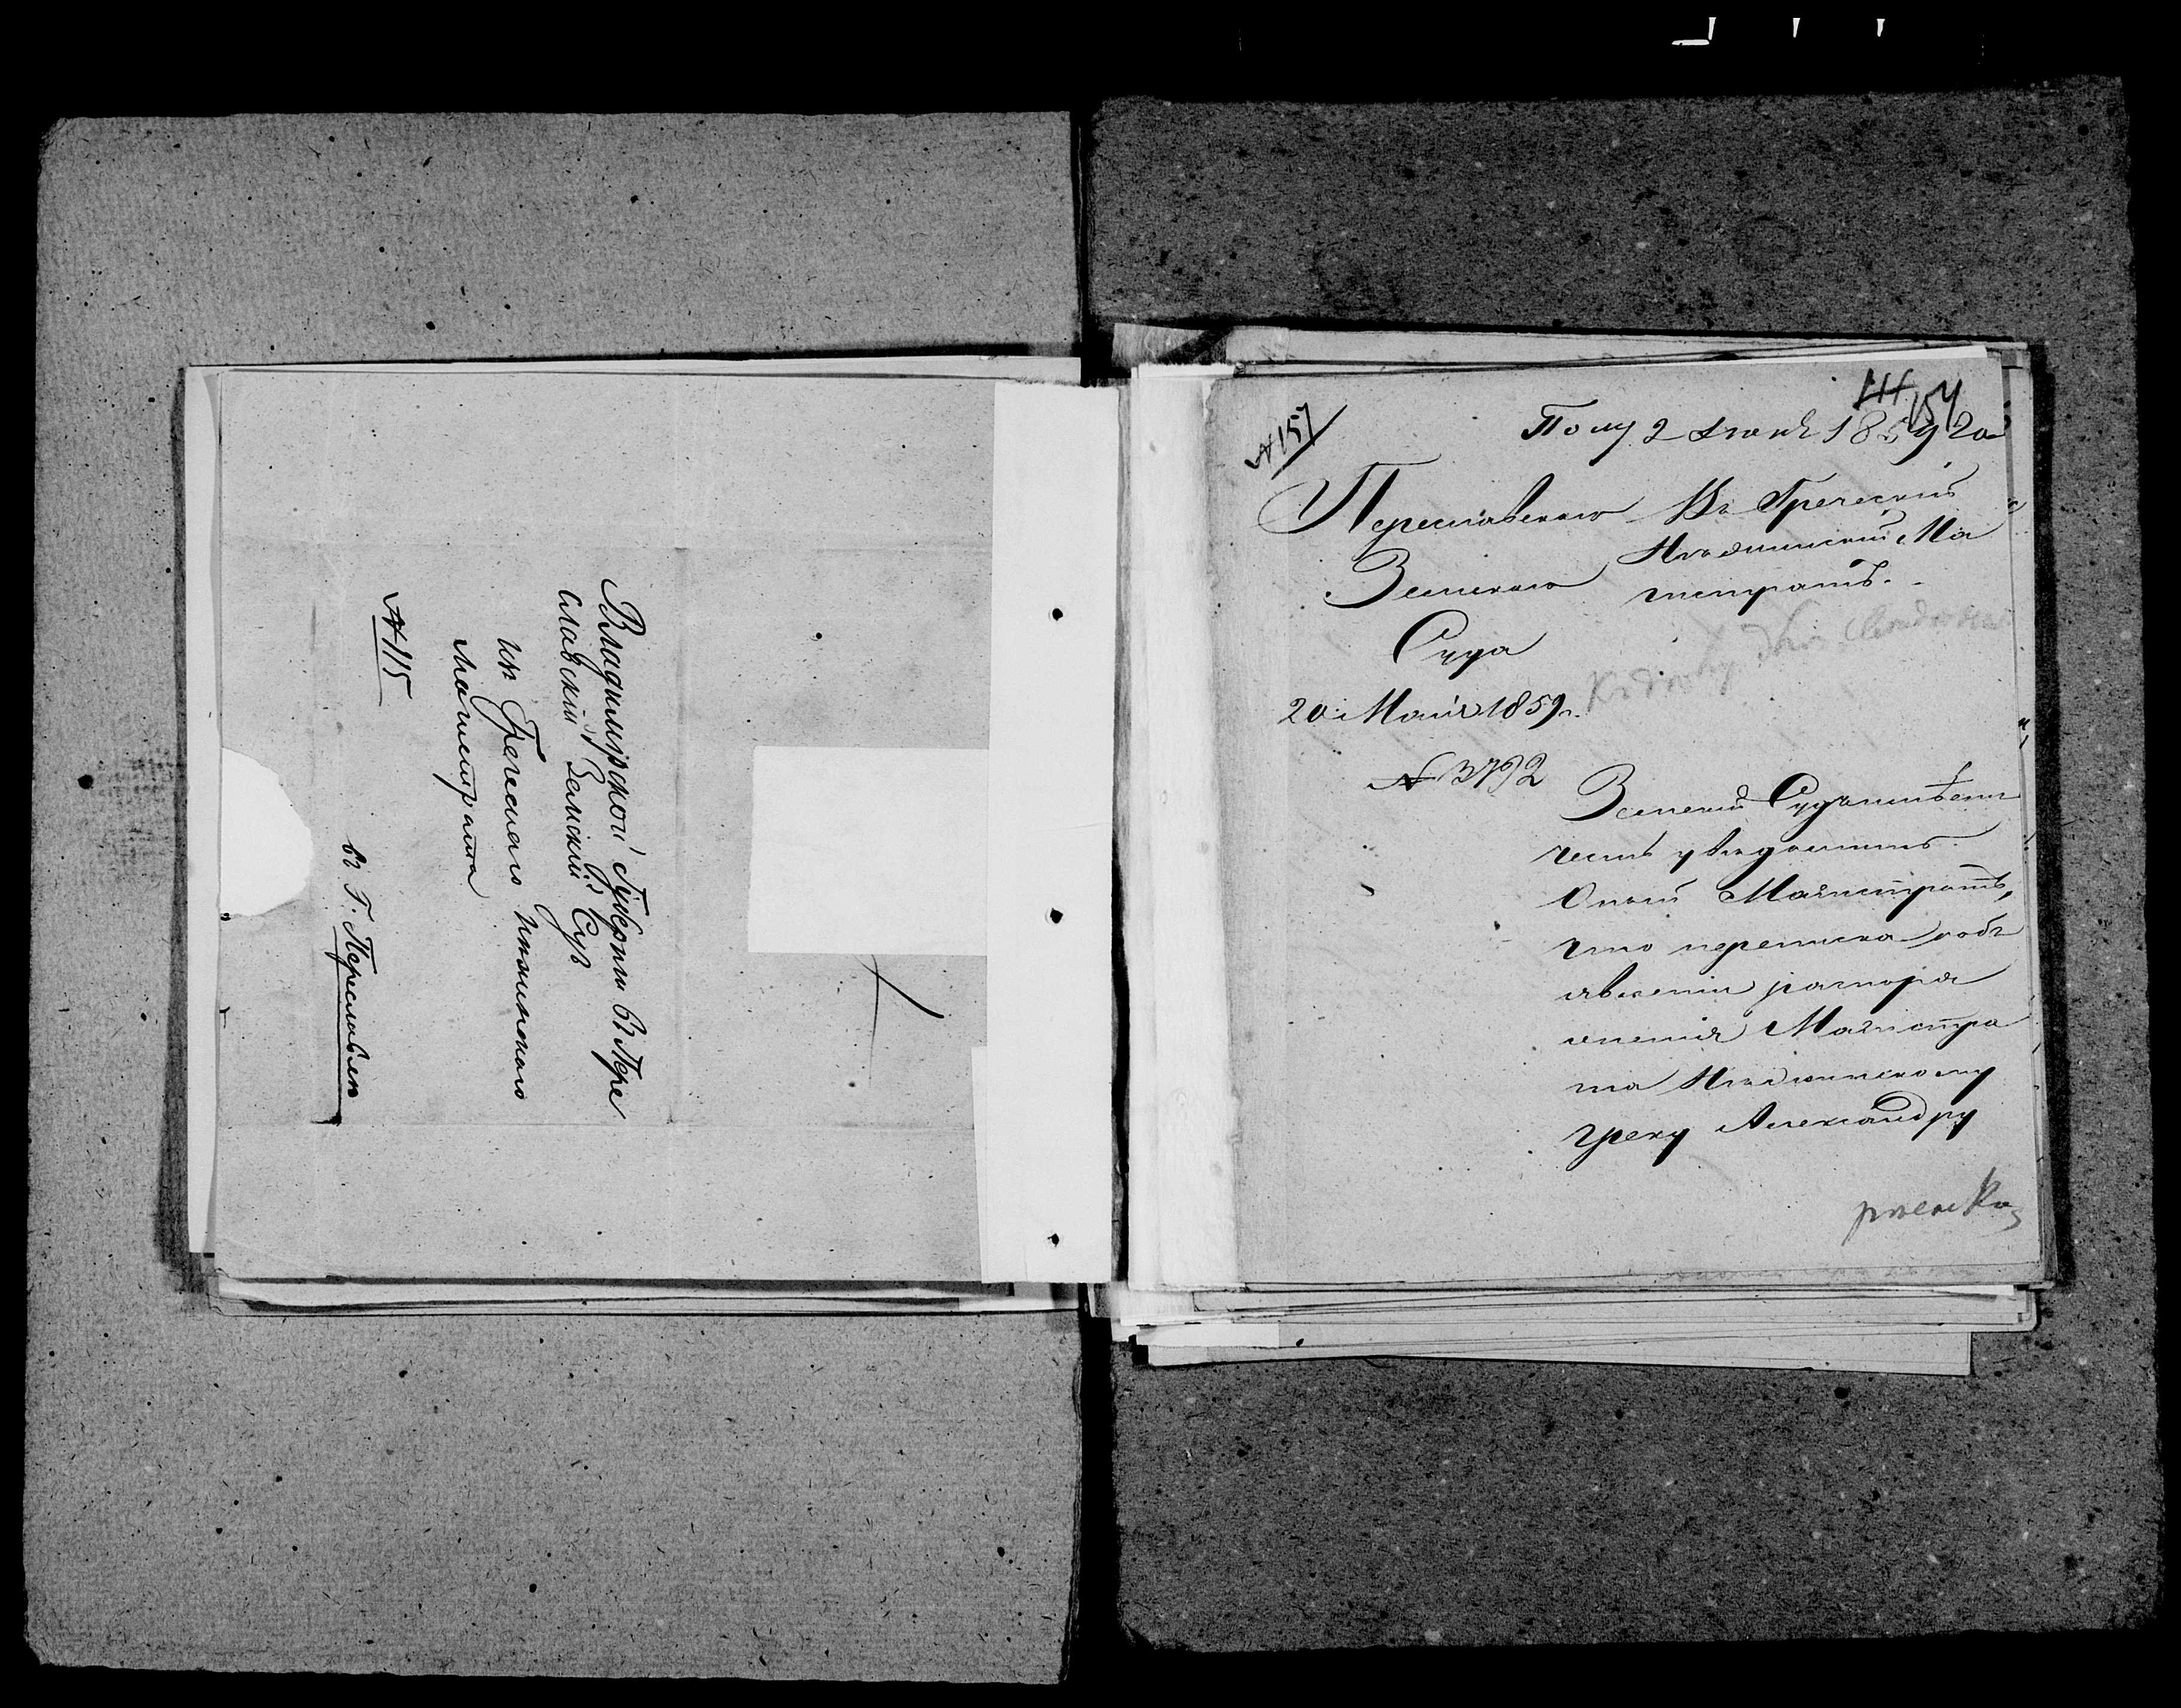 Владимирской Губернии въ Пере
славскій Земскій Судъ
изъ Греческаго Нѣжинскаго
Магистрата
№ 115
въ Г. Переславлѣ
№ 157
154
Полу. 2 Іюня 1859 года
Переславскаго
Земскаго
Суда
20 Маія 1859 г.
№ 3792
Въ Греческій
Нѣжинскій Ма
гистратъ.
Земскій Судъ имѣетъ
честь увѣдомить
Оный Магистратъ,
что переписка объ
явленіи распоря
женія Магистра
та Нѣжинскому
греку Александру